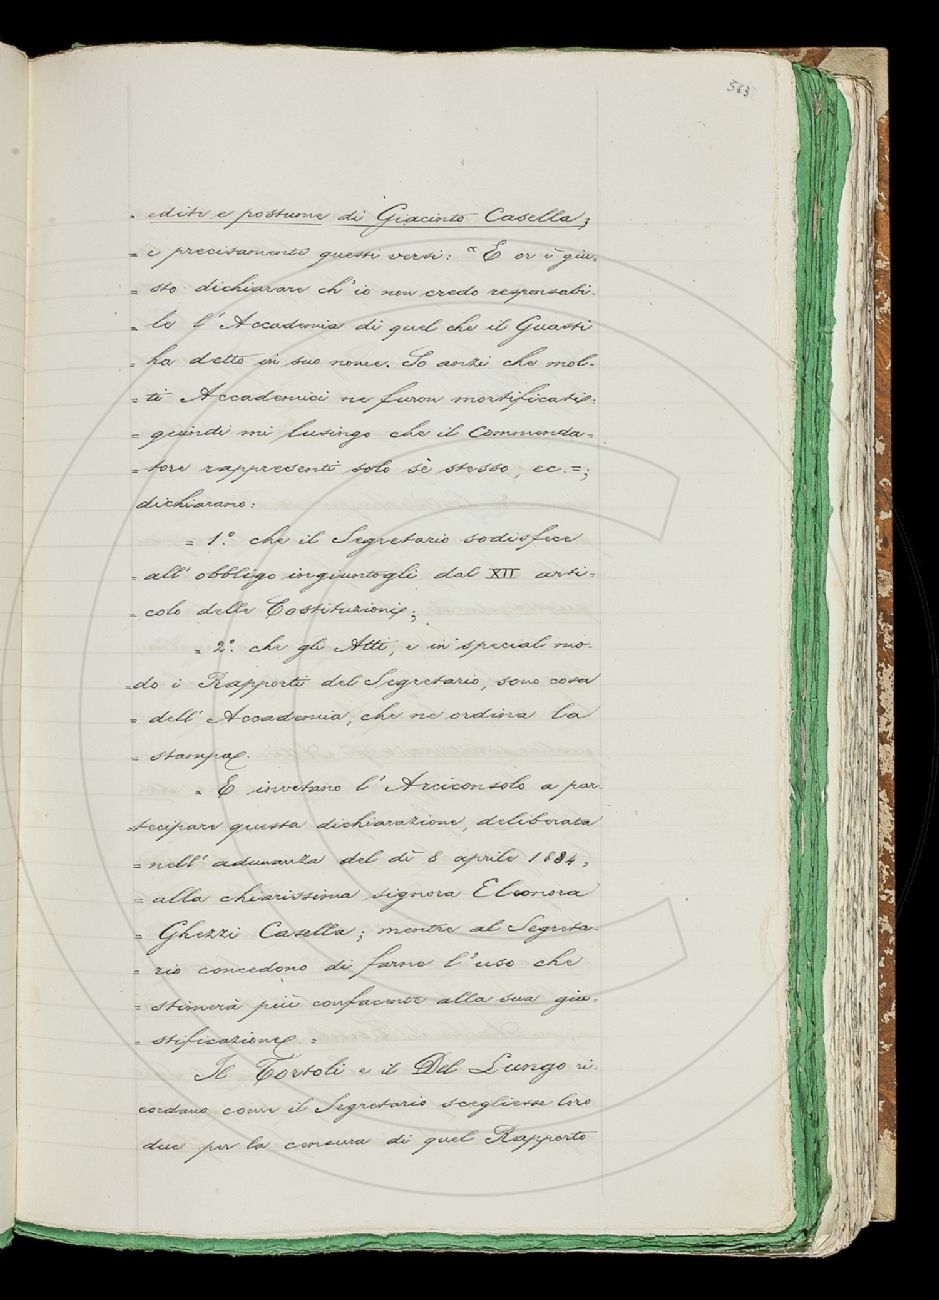 563
= edite e postume di Giacinto Casella;
= e precisamente questi versi: "E or è giu-
= sto dichiarare ch'io non credo responsabi-
= le l'Accademia di quel che il Guasti
= ha detto in suo nome. So anzi che mol-
= ti Accademici ne furon mortificati:
= quindi mi lusingo che il Commenda-
= tore rappresenti solo sè stesso, ec. =;
dichiarano:
= 1.° che il Segretario sodisfece
= all'obbligo ingiuntogli dal XII arti-
= colo delle Costituzioni;
= 2.° che gli Atti, e in special mo-
= do i Rapporti del Segretario, sono cosa
= dell'Accademia, che ne ordina la
= stampa.
= E invitano l'Arciconsolo a par-
= tecipare questa dichiarazione, deliberata
= nell'adunanza del dì 8 aprile 1884,
= alla chiarissima signora Eleonora
= Ghezzi Casella; mentre al Segreta-
= rio concedono di farne l'uso che
= stimerà più confacente alla sua giu-
= stificazione. =
Il Tortoli e il Del Lungo ri-
cordano come il Segretario scegliesse loro
due per la censura di quel Rapporto